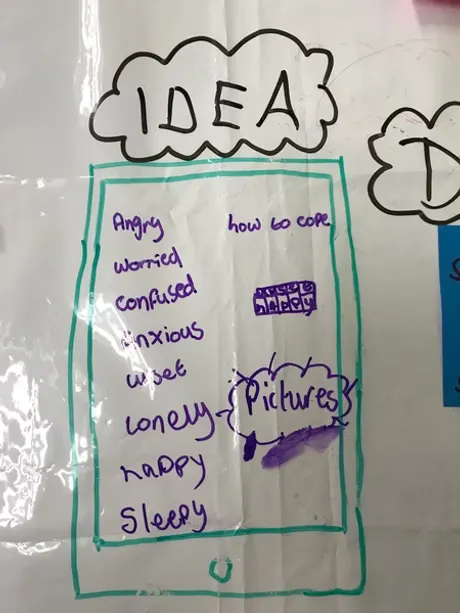 IDEA
D
Angry
worried
confused
Anxious
upset
Lonely
happy
Sleepy
how to cope
happy
Pictures